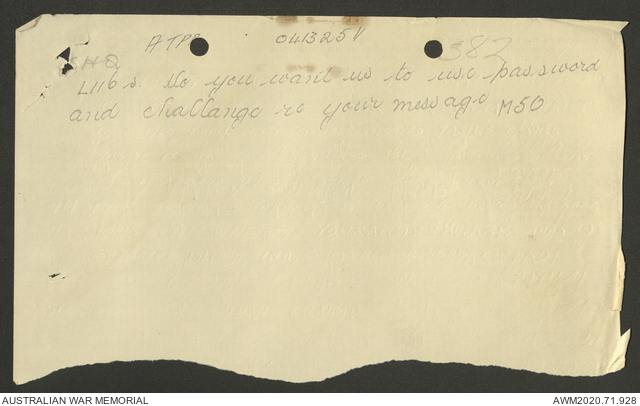 ATP 041325V 382
SHQ
L116s Do you want us to use password
and challange re your message M50
AUSTRALIAN WAR MEMORIAL
AWM2020.71.928